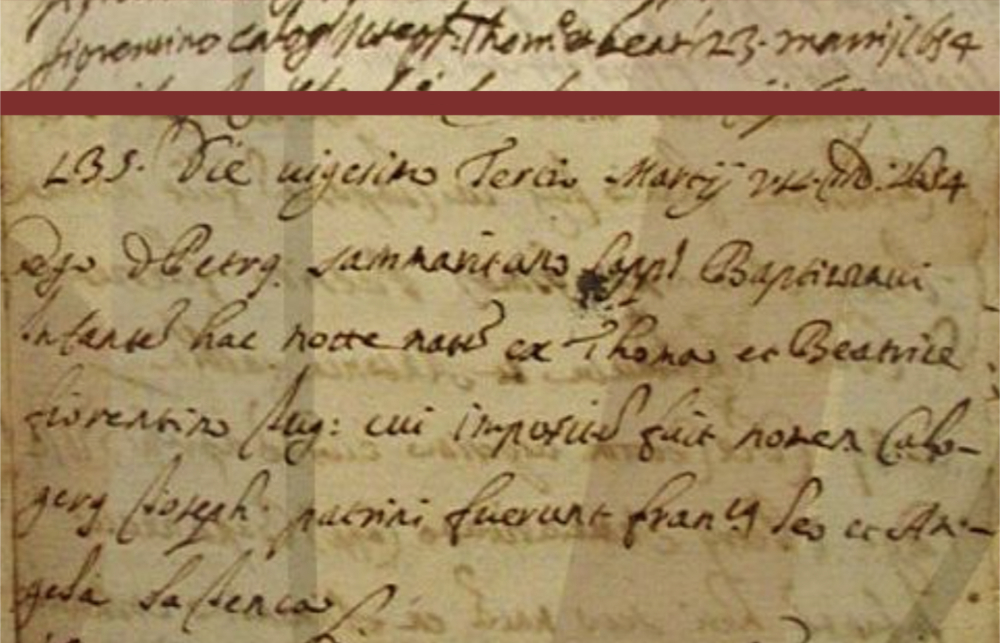 fiorentino calog Joseph Thom et beat 23 martij 1654
235. Die uigesimo Tercio Martij 1654
Ego D Petrg sammaritano Cappl Baptizaui
Infante hac notte nate ex Thoma et Beatrice
fiorentino Jug: cui impositu fuit nomen Calo-
gerg Joseph patrini fuerunt francg leo et An-
gela